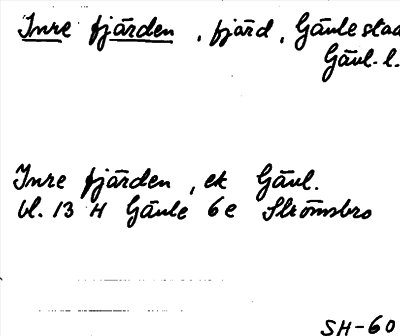 Inre fjärden, fjärd, Gävle stad
Gävl. l.
Inre fjärden, ek Gävl.
bl. 13 H Gävle 6e Strömsbro
SH-60